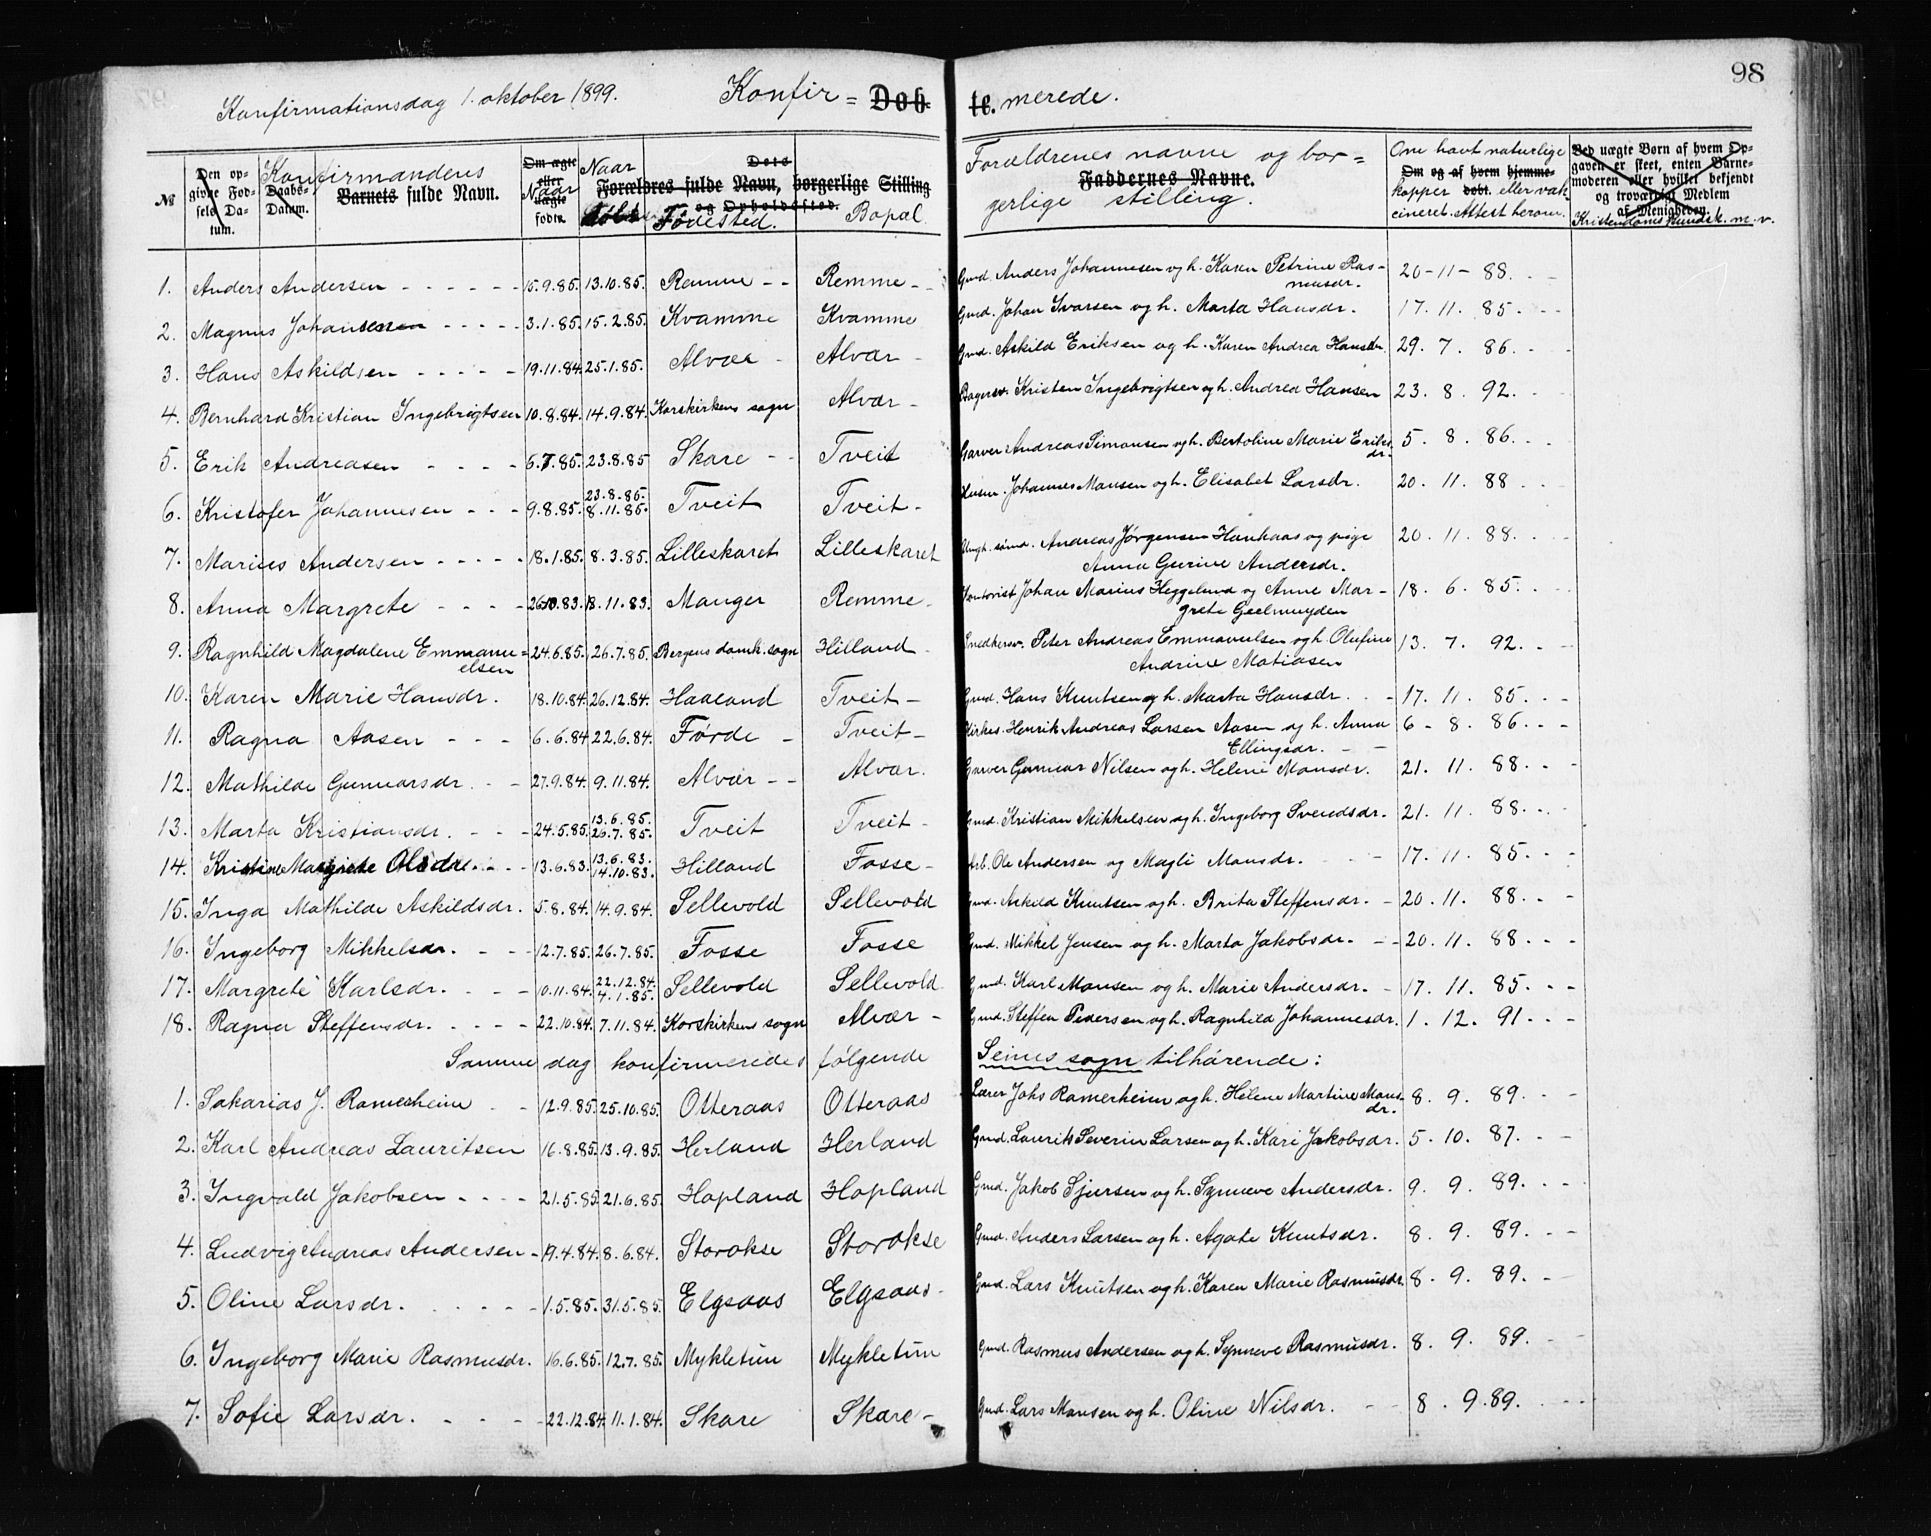 98
Konfirmationsdag 1. oktober 1899. Konfir = Døb te. merede.
№ Den opgivne Fødsels Datum. Daabs-Datum. Konfirmanderes Barnets fulde Navn. Om ægte eller uægte født. Naar Naar Døbt Dets Forældres fulde Navn, borgerlige Stilling og Opholdssted. Fødested. Bopæl Forældrenes navne og bor= gerlige stilling. Faddernes Navne. One havt naturlige kopper eller vak cineret. Attest herom. Om og af hvem hjemmedøbt. Ved uægte Børn af hvem Opgaven er skeet, enten Barnemoderen eller hvilket bekjendt og troværdigt Medlem af Menigheden. Kristendomskundsk. m. v.
1. Anders Andersen - - - - - - 15.9.85. 13.10.85. Remme - - Remme - - Gmd. Anders Johannesen og h. Karen Petrine Ras-musdr. 20-11-88. - -
2. Magnus Johansen - - - - - 3.1.85. 15.2.85. Kvamme Kvamme Gmd. Johan Ivarsen og h. Marta Hansdr. 17. 11. 85. - - -
3. Hans Askildsen - - - - - 19.11.84. 25.1.85. Alvær - Alvær - Gmd. Askild Eriksen og h. Karen Andrea Hansdr. 29. 7. 86. - - -
4. Bernhard Kristian Ingebrigtsen 10.8.84. 14.9.84. Korskirkens sogn Alvær - Bagersv. Kristen Ingebrigtsen og h. Andrea Hansen 23. 8. 92. - -
5. Erik Andreasen - - - - 6.7.85. 23.8.85 Skare - - Tveit Garver Andreas Simonsen og h. Bertoline Marie Eriksdr. 5. 8. 86. - - -
6. Kristofer Johannesen - - - 9.8.85. 23.8.85. 8.11.85. Tveit Tveit - Husm. Johannes Monsen og h. Elisabet Larsdr. 20. 11. 88 - - -
7. Marius Andersen - - - - - 18.1.85. 8.3.85. Lilleskaret Lilleskaret Ungk. sømd. Andreas Jørgensen Hanhaas og pige Anna Gurine Andersdr. 20. 11. 88. - -
8. Anna Margrete - - - - 26.10.83. 18.11.83. Manger Remme - Kontorist Johan Marius Heggelund og Anne Mar-grete Geelmuyden 18. 6. 85. - -
9. Ragnhild Magdalene Emmanu=elsen 24.6.85. 26.7.85. Bergens domk. sogn Hilland - Snedkersv. Peter Andreas Emmanuelsen og h. Olufine Andrine Matiasen 13. 7. 92. - -
10. Karen Marie Hansdr. 18.10.84. 26.12.84. Haaland Tveit - Gmd. Hans Knutsen og h. Marta Hansdr. - - 17. 11. 85. - -
11. Ragna Aasen - - - 6.6.84. 22.6.84. Førde - Tveit - Kirkes. Henrik Andreas Larsen Aasen og h. Anna Ellingsdr. - - 6 - 8. 86. - -
12. Mathilde Gunnarsdr. - - 27.9.84. 9.11.84. Alvær - - Alvær. Garver Gunnar Nilsen og h. Helene Monsdr. 21. 11. 88. - -
13. Marta Kristiansdr. - - - 24.5.85. 13.6.85. 26.7.85. Tveit Tveit - Gmd. Kristian Mikkelsen og h. Ingeborg Svendsdr. - 21. 11. 88. - -
14. Kristine Margrete Olsdr. - - - 13.6.83. 13.6.83. 14.10.83. Hilland Fosse - Arb. Ole Andersen og Magli Monsdr. - - 17. 11. 85. - -
15. Inga Mathilde Askildsdr. 5.8.84. 14.9.84. Sellevold Sellevold Gmd. Askild Knutsen og h. Brita Steffensdr. - 20. 11. 88. - -
16. Ingeborg Mikkelsdr. - - - 12.7.85. 26.7.85. Fosse Fosse Gmd. Mikkel Jensen og h. Marta Jakobsdr. - - 20. 11. 88. - -
17. Margrete Karlsdr. - - - 10.11.84. 22.12.84. 4.1.85. Sellevold Sellevold Gmd. Karl Monsen og h. Marie Andersdr. - 17. 11. 85. - -
18. Ragna Steffensdr. - - - - 22.10.84. 7.11.84. Korskirkens sogn Alvær - Gmd. Steffen Pedersen og h. Ragnhild Johannesdr. 1. 12. 91. - - -
Samme dag konfirmeredes følgende Seims sogn tilhørende:
1. Sakarias J. Romerheim - - 12.9.85. 25.10.85. Otteraas Otteraas Lærer Johs Romerheim og h. Helene Martine Mons-dr. 8. 9. 89. - -
2. Karl Andreas Lauritsen 16.8.85. 13.9.85. Herland Herland Gmd. Laurits Severin Larsen og h. Kari Jakobsdr. 5. 10. 87. - -
3. Ingvald Jakobsen - - - - 21.5.85. 21.6.85. Hopland Hopland Gmd. Jakob Sjursen og h. Synneve Andersdr. 9. 9. 89. - - -
4. Ludvig Andreas Andersen - 19.4.84. 8.6.84. Storokse Storokse Gmd. Anders Larsen og h. Agate Knutsdr. 8. 9. 89. - -
5. Oline Larsdr. - - - - - 1.5.85. 31.5.85. Elgsaas Elgsaas - Gmd. Lars Knutsen og h. Karen Marie Rasmusdr. 8. 9. 89. - -
6. Ingeborg Marie Rasmusdr. 16.6.85. 12.7.85. Mykletun Mykletun Gmd. Rasmus Andersen og h. Synneve Rasmusdr. 8. 9. 89. - -
7. Sofie Larsdr. - - - - 22.12.84 11.1.84. Skare Skare - Gmd. Lars Monsen og h. Oline Nilsdr. - - 8. 9.89. - - -